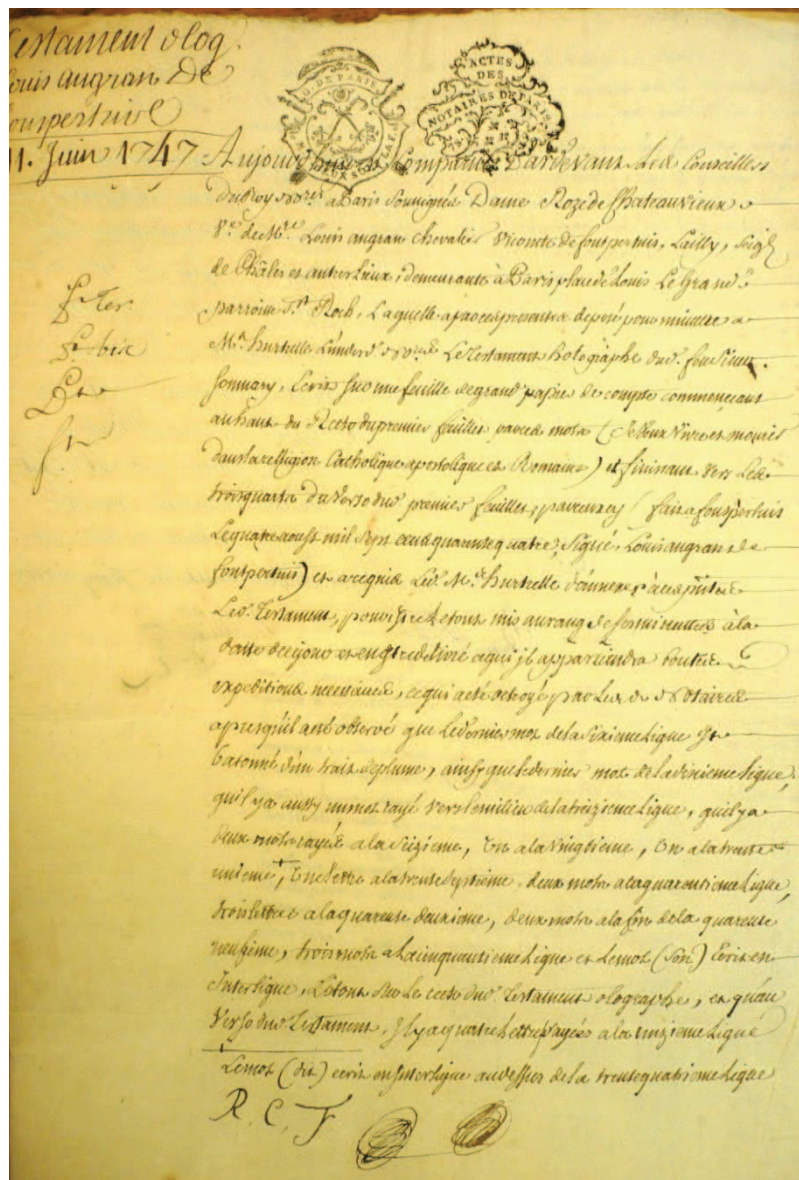 Testament olog.
Louis angran De
fonspertuis
11. Juin 1747
G. DE PARIS
ACTES
DES
NOTAIRES DE PARIS
Aujourd'huy est Comparue Pardevant Les Conseillers
du Roy nores a Paris Soussignés Dame Roze de Chateauvieux
Ve. de Mre. Louis angran chevalier Vicomte de fontpertuis, Lailly, Seigr
de Châles et autres Lieux, demeurante à Paris place de Louis Le Grand
parroisse St. Roch, Laquelle a par ces presentes deposé pour minutte a
Me. hurtrelle L'un des d. nores Le Testament holographe dud. feu Sieur
son mary, Ecrit sur une feuille de grand papier de compte commençant
au haut du Recto du premier feuillet par ces mots (Je Veux Vivre et mourir
dans la relligion Catholique apostolique et Romaine) et finissant Vers Les
trois quarts du Verso dud. premier feuillet, par ceux cy (fait a fonspertuis
Le quatre aoust mil Sept cens quarente quatre, Signé, Louis angran de
fontpertuis) et a requis Led. Me. hurtrelle d'annexer à ces pñtes
Led. Testament, pour Estre Le tout mis au rang de ses minuttes à la
datte de ce jour et en Estre delivré a qui jl appartiendra toutes
expeditions necessaires, ce qui a eté octroyé par Les d. Notaires
apres qu'il a eté observé que Le dernier mot de la Sixieme Ligne Est
batonné d'un trait de plume, ainsy que le dernier mot de la dixieme Ligne,
qu'il y a aussy un mot rayé vers le milieu de la treizieme Ligne, qu'il y a
deux mots rayés a la seizieme, Un a la vingtieme, Un a la trente
unieme, Une lettre a la trente Septieme, deux mots a la quarentieme Ligne,
trois lettres a la quarente deuxieme, deux mots a la fin de la quarente
neufieme, trois mots a La cinquantieme Ligne et Le mot (Son) Ecrit en
Interligne, Le tout sur Le recto dud. Testament olographe, et qu'au
Verso dud. Testament, Il y a quatre Lettres rayées a la onzieme Ligne
Le mot (dit) ecrit en Interligne au dessus de la trente quatrieme Ligne
R. C. F